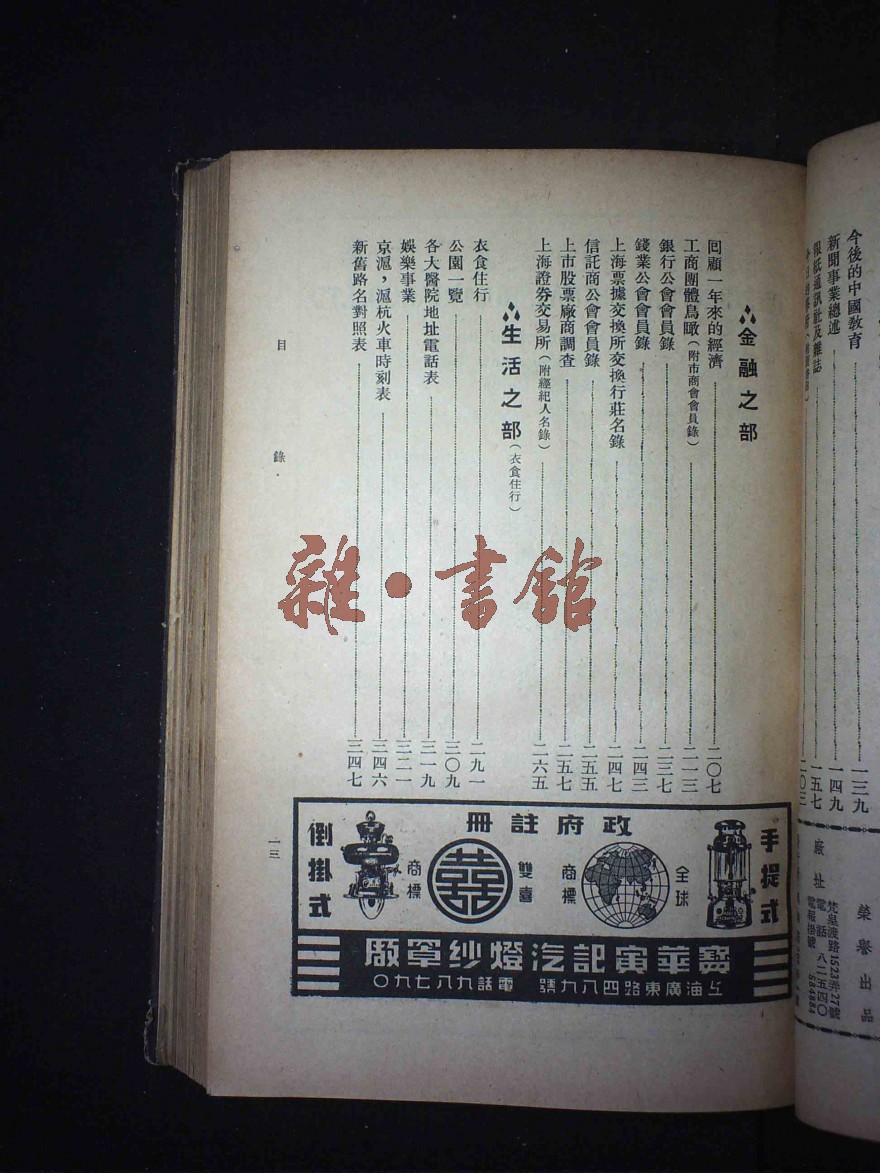 今後的中國教育……一三九
新聞事業總述……一四九
報紙通訊社及雜誌……一五七
二〇三
榮譽出品
廠址 梵皇渡路1523弄27號
電話 八二五四〇
電報掛號 584884
金融之部
囘顧一年來的經濟……二〇七
工商團體鳥瞰(附市商會會員錄)……二一三
銀行公會會員錄……二三七
錢業公會會員錄……二四三
上海票據交換所交換行莊名錄……二四七
信託商公會會員錄……二五五
上市股票廠商調查……二五七
上海證券交易所(附經紀人名錄)……二六五
生活之部(衣食住行)
衣食住行……二九一
公園一覽……三〇九
各大醫院地址電話表……三一九
娛樂事業……三二一
京滬,滬杭火車時刻表……三四六
新舊路名對照表……三四七
目錄
一三
雜·書館
政府註冊
手提式
全球
商標
雙喜
商標
倒掛式
寶華寅記汽燈紗罩廠
上海廣東路四八九號 電話九八七九〇